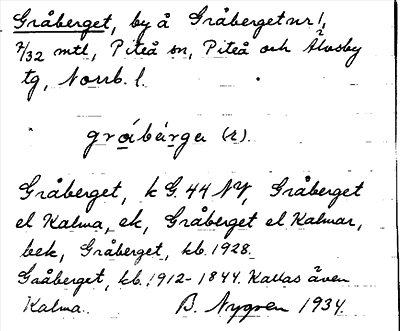 Gråberget, by å Gråberget nr 1,
7/32 mtl, Piteå sn, Piteå och Älvsby
tg, Norrb. l.
gråbärga (2).
Gråberget, k G. 44 NV, Gråberget
el Kalma, ek, Gråberget el Kalmar,
bek, Gråberget, kb. 1928.
Gråberget, kb. 1912-1844. Kallas även
Kalma. B. Nygren 1934.